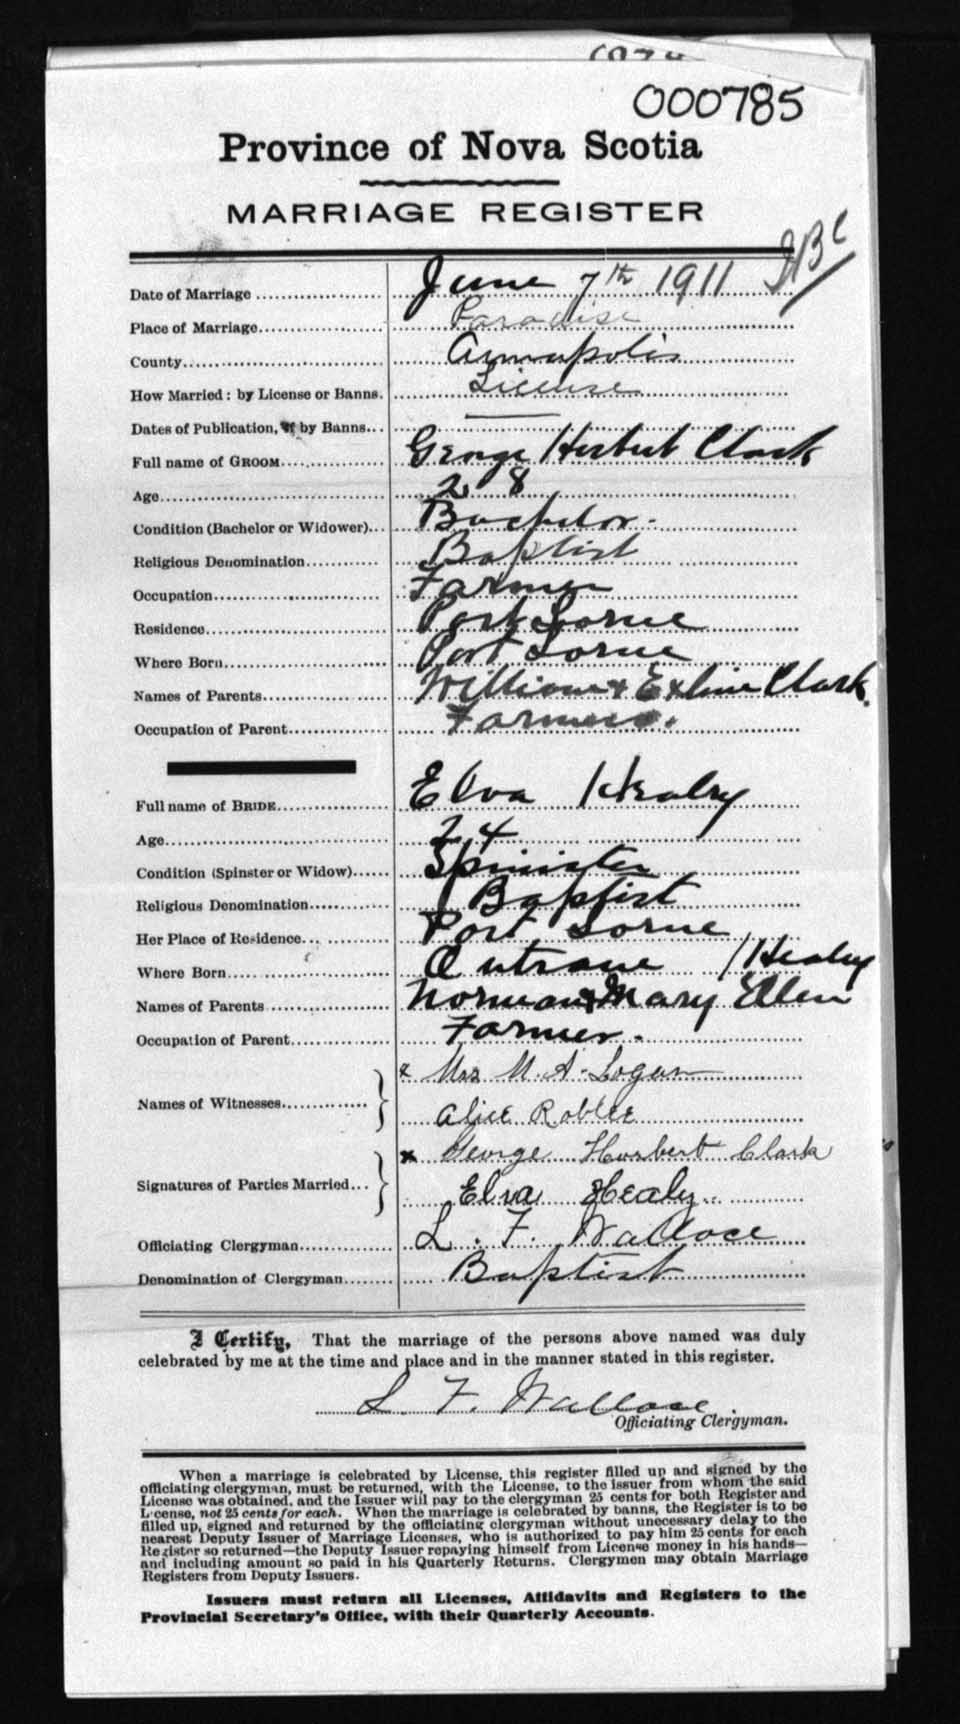 000785
Province of Nova Scotia
MARRIAGE REGISTER
Date of Marriage June 7th 1911
Place of Marriage Paradise
County Annapolis
How Married: by License or Banns. License
Dates of Publication, if by Banns
Full name of GROOM George Herbert Clark
Age 28
Condition (Bachelor or Widower) Bachelor.
Religious Denomination Baptist
Occupation Farmer
Residence Port Lorne
Where Born Port Lorne
Names of Parents William & Exline Clark.
Occupation of Parent Farmer.
Full name of BRIDE Elva Healy
Age 24
Condition (Spinster or Widow) Spinster
Religious Denomination Baptist
Her Place of Residence Port Lorne
Where Born Outram / Healy
Names of Parents Norman & Mary Ellen
Occupation of Parent Farmer.
x Mrs M. A. Logan
Names of Witnesses Alice Roblee
x George Herbert Clark
Signatures of Parties Married Elva Healy
Officiating Clergyman L. F. Wallace
Denomination of Clergyman Baptist
I Certify, That the marriage of the persons above named was duly
celebrated by me at the time and place and in the manner stated in this register.
L. F. Wallace.
Officiating Clergyman.
When a marriage is celebrated by License, this register filled up and signed by the
officiating clergyman, must be returned, with the License, to the issuer from whom the said
License was obtained, and the Issuer will pay to the clergyman 25 cents for both Register and
License, not 25 cents for each. When the marriage is celebrated by banns, the Register is to be
filled up, signed and returned by the officiating clergyman without unecessary delay to the
nearest Deputy Issuer of Marriage Licenses, who is authorized to pay him 25 cents for each
Register so returned—the Deputy Issuer repaying himself from License money in his hands—
and including amount so paid in his Quarterly Returns. Clergymen may obtain Marriage
Registers from Deputy Issuers.
Issuers must return all Licenses, Affidavits and Registers to the
Provincial Secretary's Office, with their Quarterly Accounts.